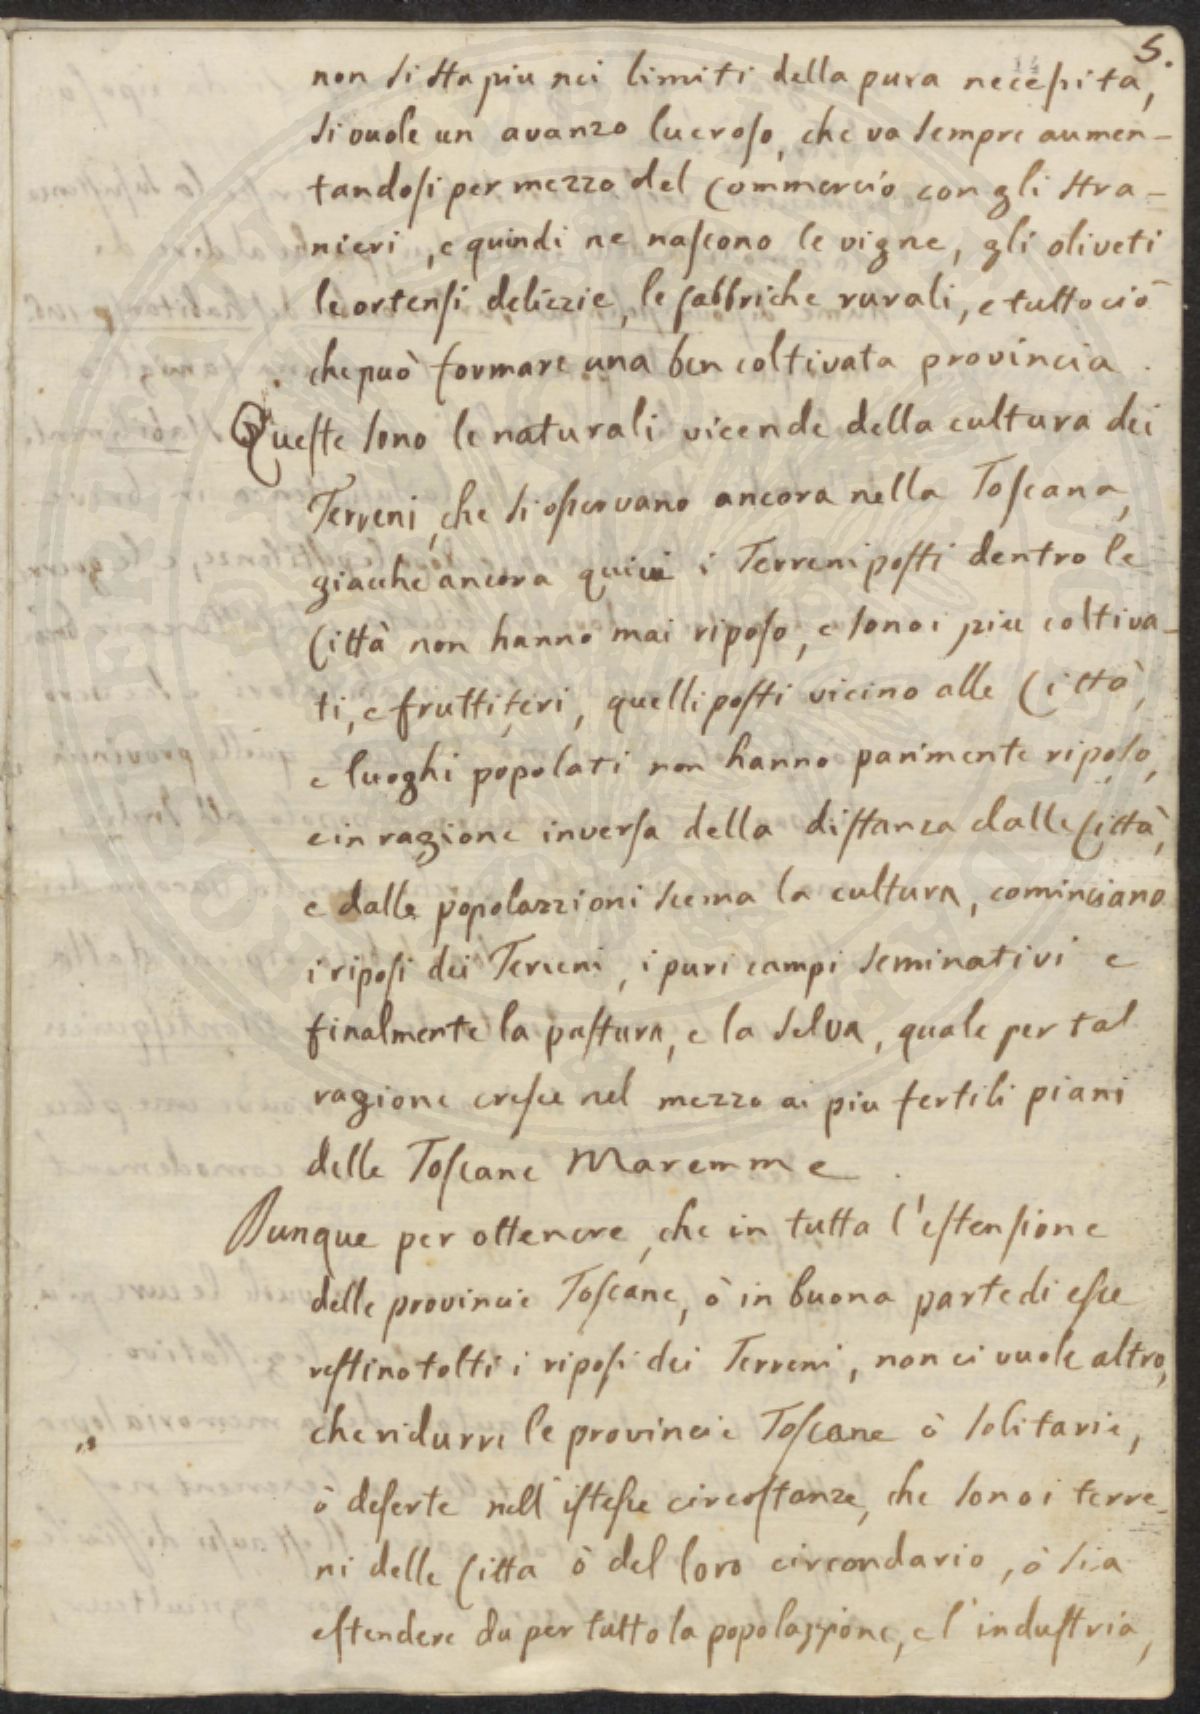 5.
non si sta piu nei limiti della pura necessita,
si vuole un avanzo lucroso, che va sempre aumen-
tandosi per mezzo del Commercio con gli stra-
nieri, e quindi ne nascono le vigne, gli oliveti
le ortensi delizzie, le fabbriche rurali, e tutto ciò
che può formare una ben coltivata provincia.
Queste sono le naturali vicende della cultura dei
Terreni, che si osservano ancora nella Toscana,
giacche ancora quivi i Terreni posti dentro le
Città non hanno mai riposo, e sono i piu coltiva-
ti, e fruttiferi, quelli posti vicino alle Città,
e luoghi popolati non hanno parimente riposo,
e in ragione inversa della distanza dalle Città,
e dalle popolazzioni scema la cultura, cominciano
i riposi dei Terreni, i puri campi seminativi e
finalmente la pastura, e la selva, quale per tal
ragione cresce nel mezzo ai piu fertili piani
delle Toscane Maremme.
Dunque per ottenere, che in tutta l'estensione
delle provincie Toscane, ò in buona parte di esse
restino tolti i riposi dei Terreni, non ci vuole altro,
che ridurre le provincie Toscane ò solitarie,
ò deserte nell' istesse circostanze, che sono i terre-
ni delle Citta ò del loro circondario, ò sia
estendere da per tutto la popolazzione, e l'industria,